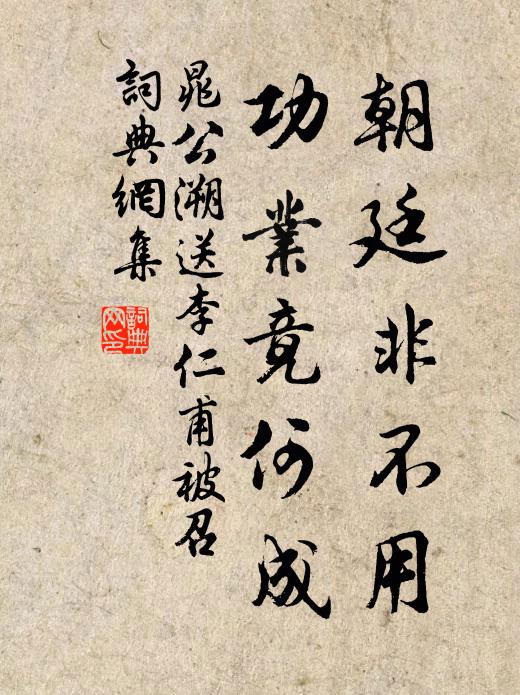 朝廷非不用
功業竟何成
晁公溯送李仁甫被召
詞典網集
詞典網印